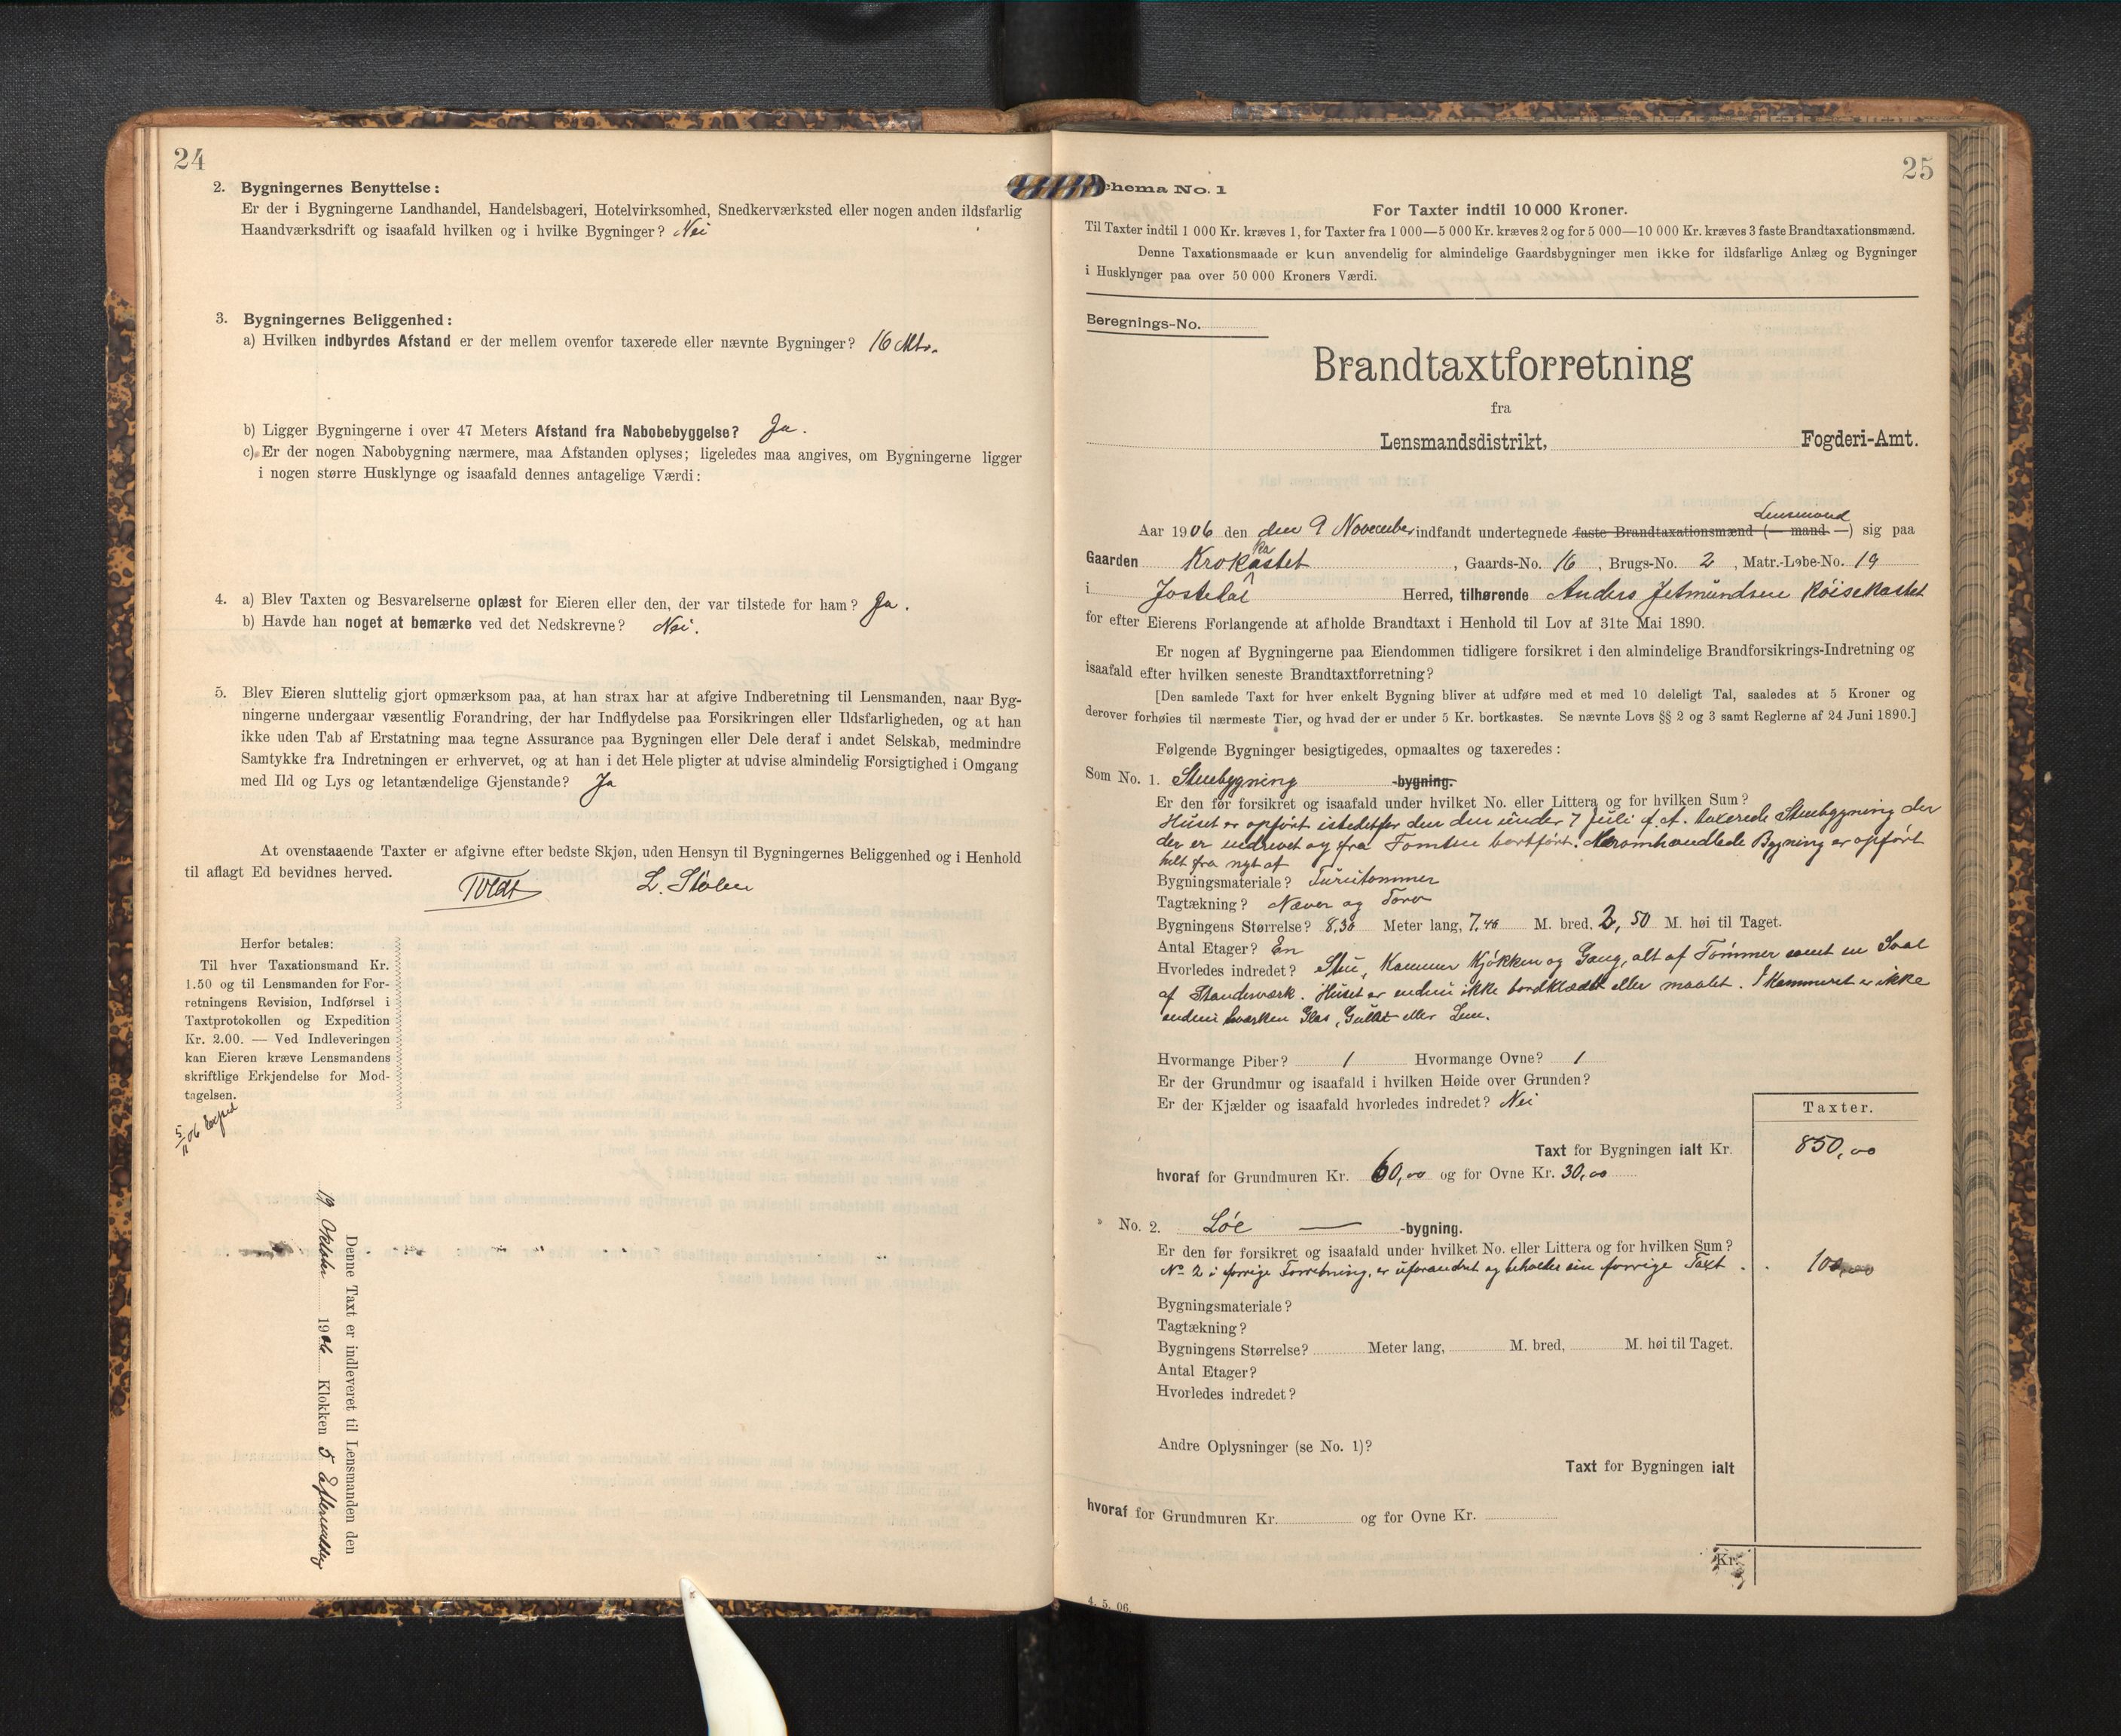 24
2. Bygningernes Benyttelse:
Er der i Bygningerne Landhandel, Handelsbageri, Hotelvirksomhed, Snedkerværksted eller nogen anden ildsfarlig
Haandværksdrift og isaafald hvilken og i hvilke Bygninger? Nei
3. Bygningernes Beliggenhed:
a) Hvilken indbyrdes Afstand er der mellem ovenfor taxerede eller nævnte Bygninger? 16 Mtr.
b) Ligger Bygningerne i over 47 Meters Afstand fra Nabobebyggelse? Ja.
c) Er der nogen Nabobygning nærmere, maa Afstanden oplyses; ligeledes maa angives, om Bygningerne ligger
i nogen større Husklynge og isaafald dennes antagelige Værdi:
4. a) Blev Taxten og Besvarelserne oplæst for Eieren eller den, der var tilstede for ham? Ja.
b) Havde han noget at bemærke ved det Nedskrevne? Nei.
5. Blev Eieren sluttelig gjort opmærksom paa, at han strax har at afgive Indberetning til Lensmanden, naar Byg-
ningerne undergaar væsentlig Forandring, der har Indflydelse paa Forsikringen eller Ildsfarligheden, og at han
ikke uden Tab af Erstatning maa tegne Assurance paa Bygningen eller Dele deraf i andet Selskab, medmindre
Samtykke fra Indretningen er erhvervet, og at han i det Hele pligter at udvise almindelig Forsigtighed i Omgang
med Ild og Lys og letantændelige Gjenstande? Ja
At ovenstaaende Taxter er afgivne efter bedste Skjøn, uden Hensyn til Bygningernes Beliggenhed og i Henhold
til aflagt Ed bevidnes herved.
L. Stolen
Herfor betales:
Til hver Taxationsmand Kr.
1.50 og til Lensmanden for For-
retningens Revision, Indførsel i
Taxtprotokollen og Expedition
Kr. 2.00. — Ved Indleveringen
kan Eieren kræve Lensmandens
skriftlige Erkjendelse for Mod-
tagelsen.
5/11 06 Exped
Denne Taxt er indleveret til Lensmanden den
19 Oktober 1906 Klokken 5 Eftermiddag
25
Schema No. 1
For Taxter indtil 10 000 Kroner.
Til Taxter indtil 1 000 Kr. kræves 1, for Taxter fra 1 000—5 000 Kr. kræves 2 og for 5 000—10 000 Kr. kræves 3 faste Brandtaxationsmænd.
Denne Taxationsmaade er kun anvendelig for almindelige Gaardsbygninger men ikke for ildsfarlige Anlæg og Bygninger
i Husklynger paa over 50 000 Kroners Værdi.
Beregnings-No.
Brandtaxtforretning
fra
Lensmandsdistrikt, Fogderi-Amt.
Lensmand
Aar 1906 den den 9 November indfandt undertegnede faste Brandtaxationsmænd (— mand —) sig paa
Gaarden Krokastet, Gaards-No. 16, Brugs-No. 2, Matr.-Løbe-No. 19
i Jostedal Herred, tilhørende Anders Jetmundsen Røisekastet
for efter Eierens Forlangende at afholde Brandtaxt i Henhold til Lov af 31te Mai 1890.
Er nogen af Bygningerne paa Eiendommen tidligere forsikret i den almindelige Brandforsikrings-Indretning og
isaafald efter hvilken seneste Brandtaxtforretning?
[Den samlede Taxt for hver enkelt Bygning bliver at udføre med et med 10 deleligt Tal, saaledes at 5 Kroner og
derover forhøies til nærmeste Tier, og hvad der er under 5 Kr. bortkastes. Se nævnte Lovs §§ 2 og 3 samt Reglerne af 24 Juni 1890.]
Følgende Bygninger besigtigedes, opmaaltes og taxeredes:
Som No. 1. Stuebygning -bygning.
Er den før forsikret og isaafald under hvilket No. eller Littera og for hvilken Sum?
Huset er opført istedetfor den den under 7 Juli d. A. taxerede Stuebygning der
der er nedrevet og fra Tomten bortført. Næromhandlede Bygning er opført
helt fra nyt af
Bygningsmateriale? Furutømmer
Tagtækning? Næver og Torv
Bygningens Størrelse? 8,30 Meter lang, 7,40 M. bred, 2,50 M. høi til Taget.
Antal Etager? En
Hvorledes indredet? Stue, Kammer Kjøkken og Gang, alt af Tømmer samt en Sval
af Standerværk. Huset er endnu ikke bordklædt eller maalet. I Kammeret er ikke
endnu hverken Glas, Gulvt eller Lem.
Hvormange Piber? 1 Hvormange Ovne? 1
Er der Grundmur og isaafald i hvilken Høide over Grunden?
Er der Kjælder og isaafald hvorledes indredet? Nei
Taxter.
Taxt for Bygningen ialt Kr. 850,00
hvoraf for Grundmuren Kr. 60,00 og for Ovne Kr. 30,00
No. 2. Løe — -bygning.
Er den før forsikret og isaafald under hvilket No. eller Littera og for hvilken Sum?
No 2 i forrige Forretning, er uforandret og beholder sin forrige Taxt. 100,00
Bygningsmateriale?
Tagtækning?
Bygningens Størrelse? Meter lang, M. bred, M. høi til Taget.
Antal Etager?
Hvorledes indredet?
Andre Oplysninger (se No. 1)?
Taxt for Bygningen ialt
hvoraf for Grundmuren Kr. og for Ovne Kr.
Kr.
4. 5. 06.